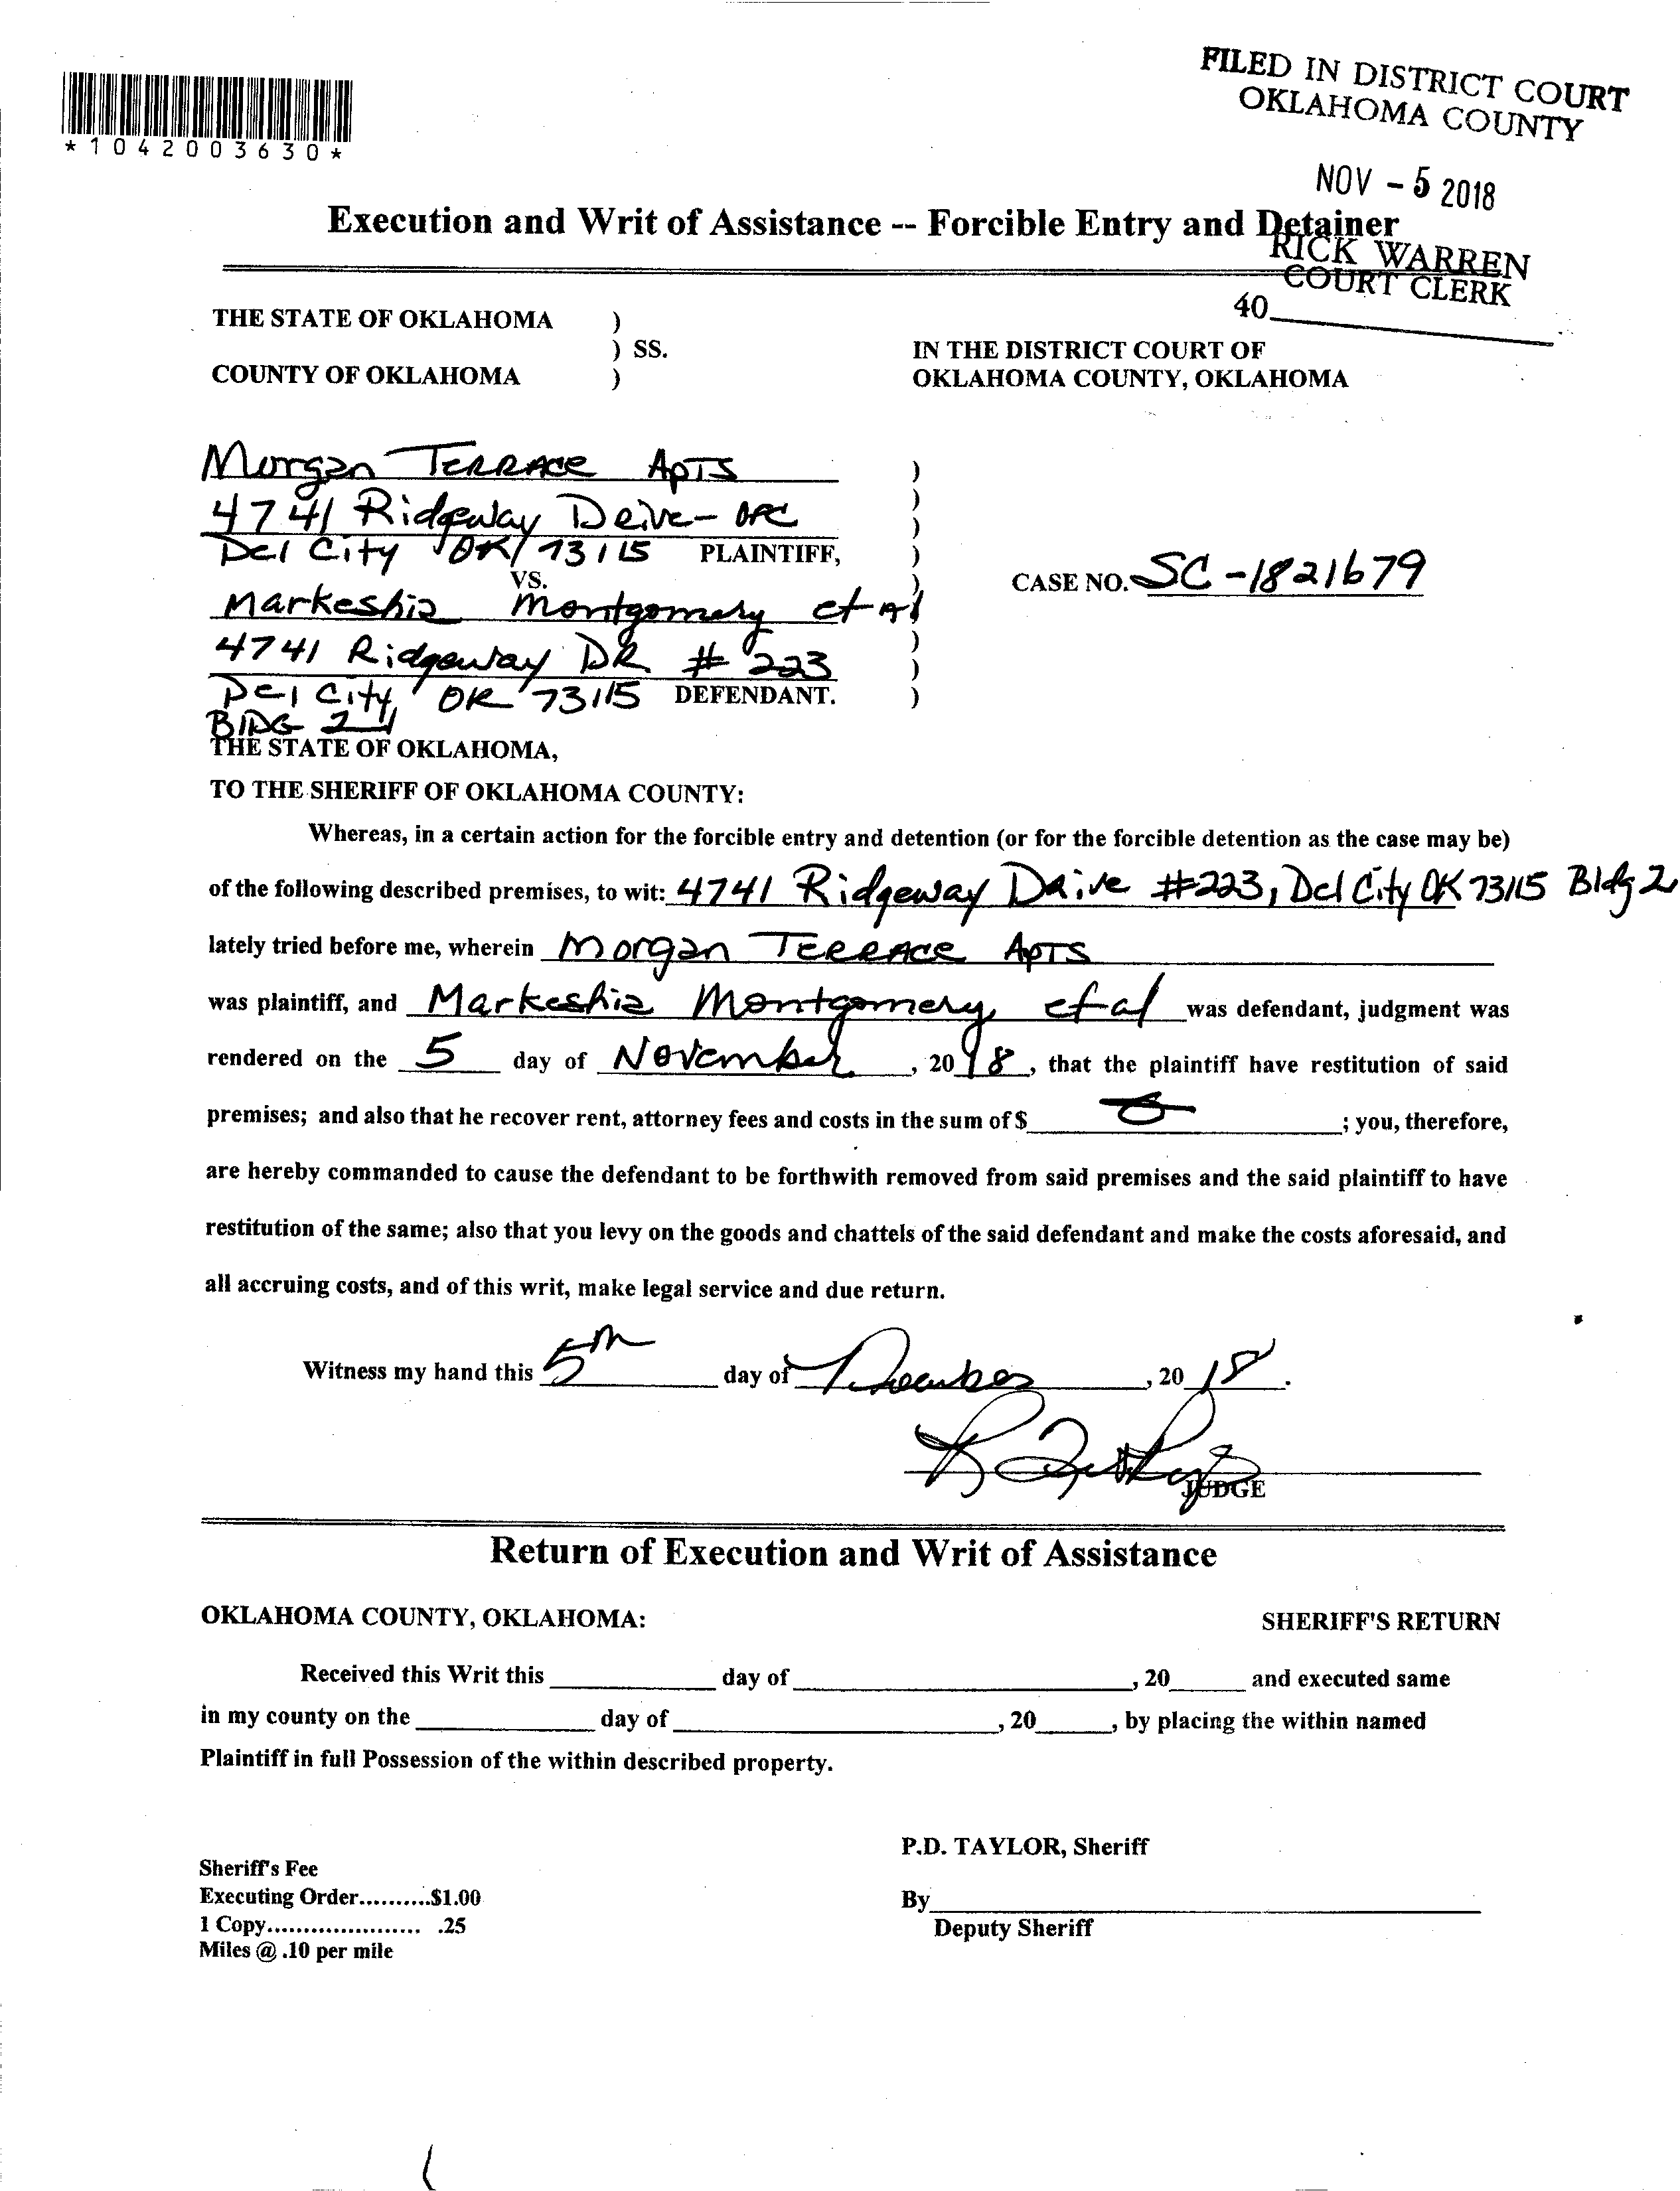 FILED IN DISTRICT COURT
OKLAHOMA COUNTY
*1042003630*
NOV - 5 2018
Execution and Writ of Assistance -- Forcible Entry and Detainer
RICK WARREN
COURT CLERK
40
THE STATE OF OKLAHOMA )
) SS.
COUNTY OF OKLAHOMA )
IN THE DISTRICT COURT OF
OKLAHOMA COUNTY, OKLAHOMA
Morgan Terrace Apts )
4741 Ridgeway Drive - OFC )
Del City OK 73115 PLAINTIFF, )
VS.
CASE NO. SC-1821679
Markeshia Montgomery et Al )
4741 Ridgeway DR # 223 )
Del City, OK 73115 DEFENDANT. )
BlDG 2
THE STATE OF OKLAHOMA,
TO THE SHERIFF OF OKLAHOMA COUNTY:
Whereas, in a certain action for the forcible entry and detention (or for the forcible detention as the case may be)
of the following described premises, to wit: 4741 Ridgeway Drive #223, Del City OK 73115 Bldg 2
lately tried before me, wherein Morgan Terrace Apts
was plaintiff, and Markeshia Montgomery et al was defendant, judgment was
rendered on the 5 day of November, 2018, that the plaintiff have restitution of said
premises; and also that he recover rent, attorney fees and costs in the sum of $ 0 ; you, therefore,
are hereby commanded to cause the defendant to be forthwith removed from said premises and the said plaintiff to have
restitution of the same; also that you levy on the goods and chattels of the said defendant and make the costs aforesaid, and
all accruing costs, and of this writ, make legal service and due return.
Witness my hand this 5th day of November, 20 18.
JUDGE
Return of Execution and Writ of Assistance
OKLAHOMA COUNTY, OKLAHOMA: SHERIFF'S RETURN
Received this Writ this ____ day of ____, 20____ and executed same
in my county on the ____ day of ____, 20____, by placing the within named
Plaintiff in full Possession of the within described property.
P.D. TAYLOR, Sheriff
Sheriff's Fee
Executing Order..........$1.00
By____
1 Copy..................... .25
Deputy Sheriff
Miles @ .10 per mile